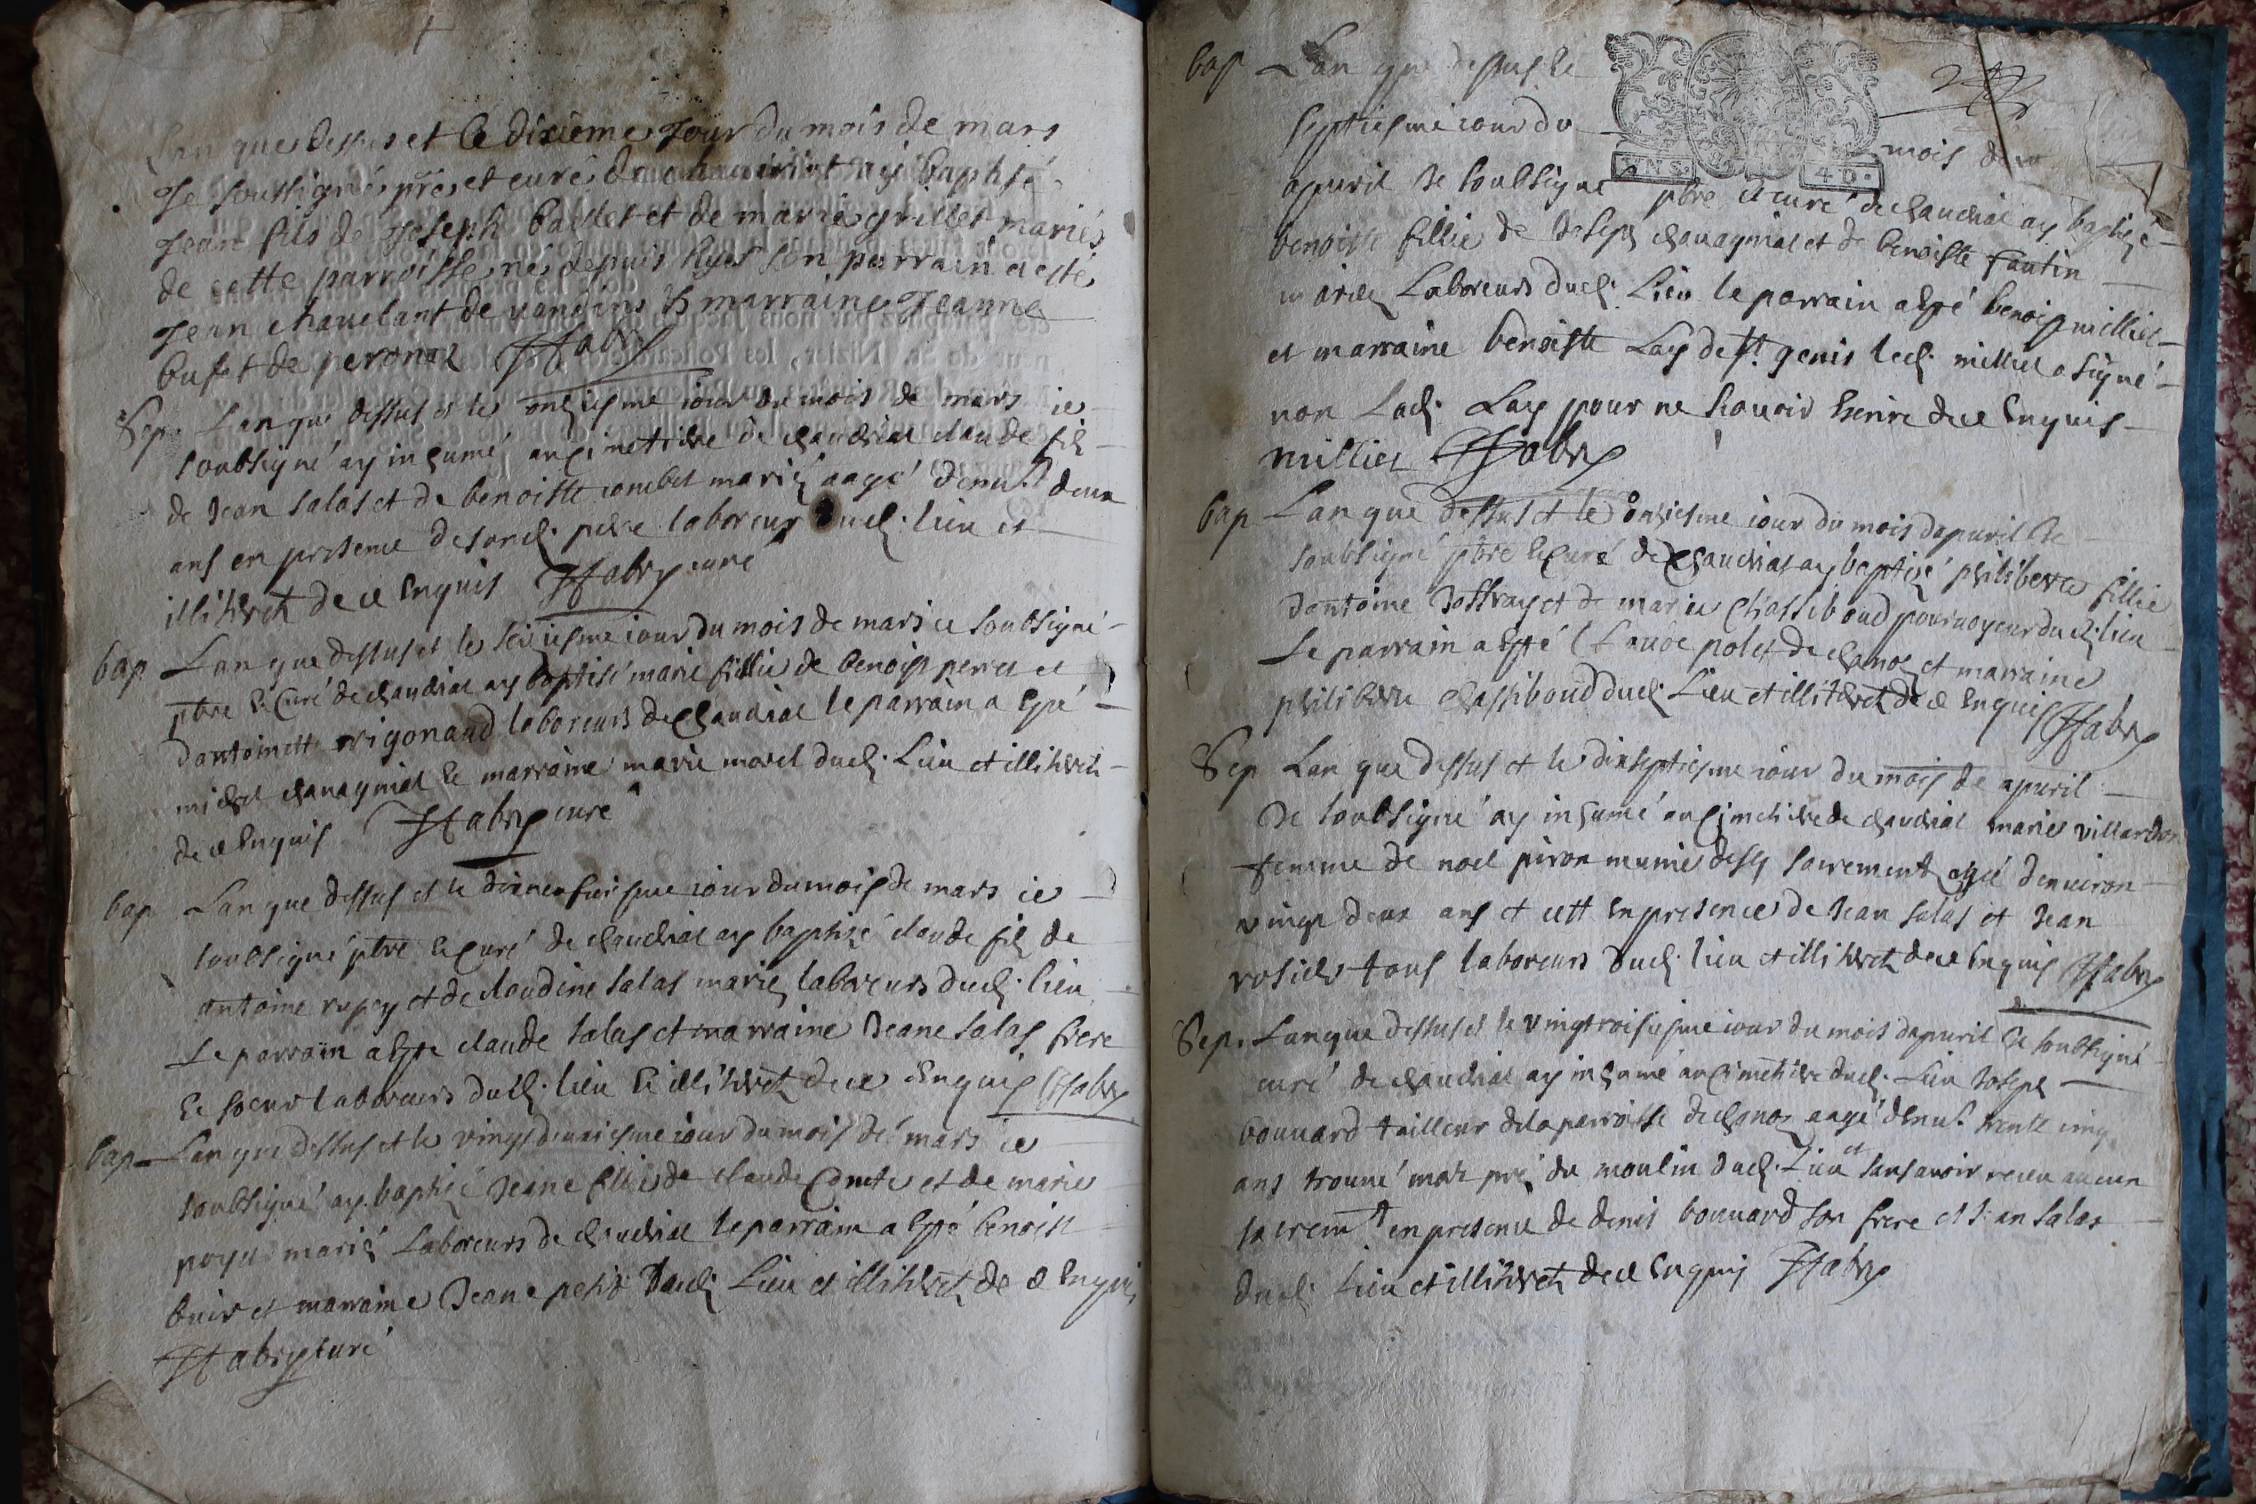 Lan que dessus et le dixiême Jour du mois de mars
Je soussigné pre et curé de chaveiriat ay baptisé
Jean fils de Joseph baillet et de marie grillet mariés
de cette parroisse né depuis hyer son parrain a esté
Jean chavelant de vandins et marraine Jeanne
bufet de peronaz Ffabry
Sep. Lan que dessus et le onziesme iour du mois de mars ie
soubsigné ay inhumé au cimetière de chaveriat claude fils
de Jean salas et de benoiste combet mariés aagé denv. deux
ans en presence de sond. père laboreur dud. lieu et
illitéréz de ce Enquis Ffabry curé
bap Lan que dessus et le seiziesme iour du mois de mars ie soubsigné
pbre & Curé de chaveriat ay baptisé marie fillie de benoist perret et
dantoinette rigonaud laboreurs de chaveriat le parrain a Esté
michel chavaigniat & marraine marie morel dud. Lieu et illitéréz
de ce Enquis Ffabry curé
bap Lan que dessus et le dixneufiesme iour du mois de mars ie
soubsigné pbre & Curé de chaveriat ay baptisé claude filz de
antoine rupey et de claudine salas mariez laboreurs dud. lieu
Le parrain a Esté claude salas et marraine Jeane salas frere
& soeur laboreurs dud. lieu & illitéréz de ce Enquis Ffabry
bap Lan que dessus et le vingtdeuxiesme iour du mois de mars ie
soubsigné ay baptisé Jeane fillie de claude Comte et de marie
poyu mariés Laboreurs de chaveriat le parrain a Esté benoist
buir et marraine Jeane petit dud. Lieu et illitéréz de ce Enquis
Ffabry Curé
bap Lan que dessus &
septiesme iour du mois de
apuril Je soubsigné pbre & curé de chaveriat ay baptizé
benoiste fillie de Joseph chavaigniat et de benoiste fantin
mariez Laboreurs dud. Lieu le parrain a Esté benoist millet
et marraine benoiste Lay de st. genis led. millet a signé
non Lad. Lay pour ne scavoir Escrire de ce Enquis
millet Ffabry
bap Lan que dessus et le onziesme iour du mois dapuril Je
soubsigné pbre & Curé de chaveriat ay baptizé philiberte fillie
dantoine Joffray et de marie Chassiboud pourvoyeur dud. lieu
Le parrain a Esté Claude polet de chanoz et marraine
philiberte chassiboud dud. Lieu et illitéréz de ce Enquis Ffabry
Sep Lan que dessus et le dixseptiesme iour du mois de apuril
Je soubsigné ay inhumé au cimetière de chaveriat marie villardon
femme de noel piron munie des s sacrement agée denviron
vingt deux ans et cett En presence de Jean salas et Jean
rosiers tous laboreurs dud. lieu et illitéréz de ce Enquis Ffabry
Sep. Lan que dessus et le vingtroisiesme iour du mois dapuril Je soubsigné
curé de chaveriat ay inhumé au cimetière dud. Lieu Joseph
bouvard tailleur de la parroisse de chanoz aagé denv. trente cinq
ans trouvé mort prez du moulin dud. Lieu et sans avoir receu aucun
sacremt en presence de denis bouvard son frere et Jean salas
dud. Lieu et illitéréz de ce Enquis Ffabry